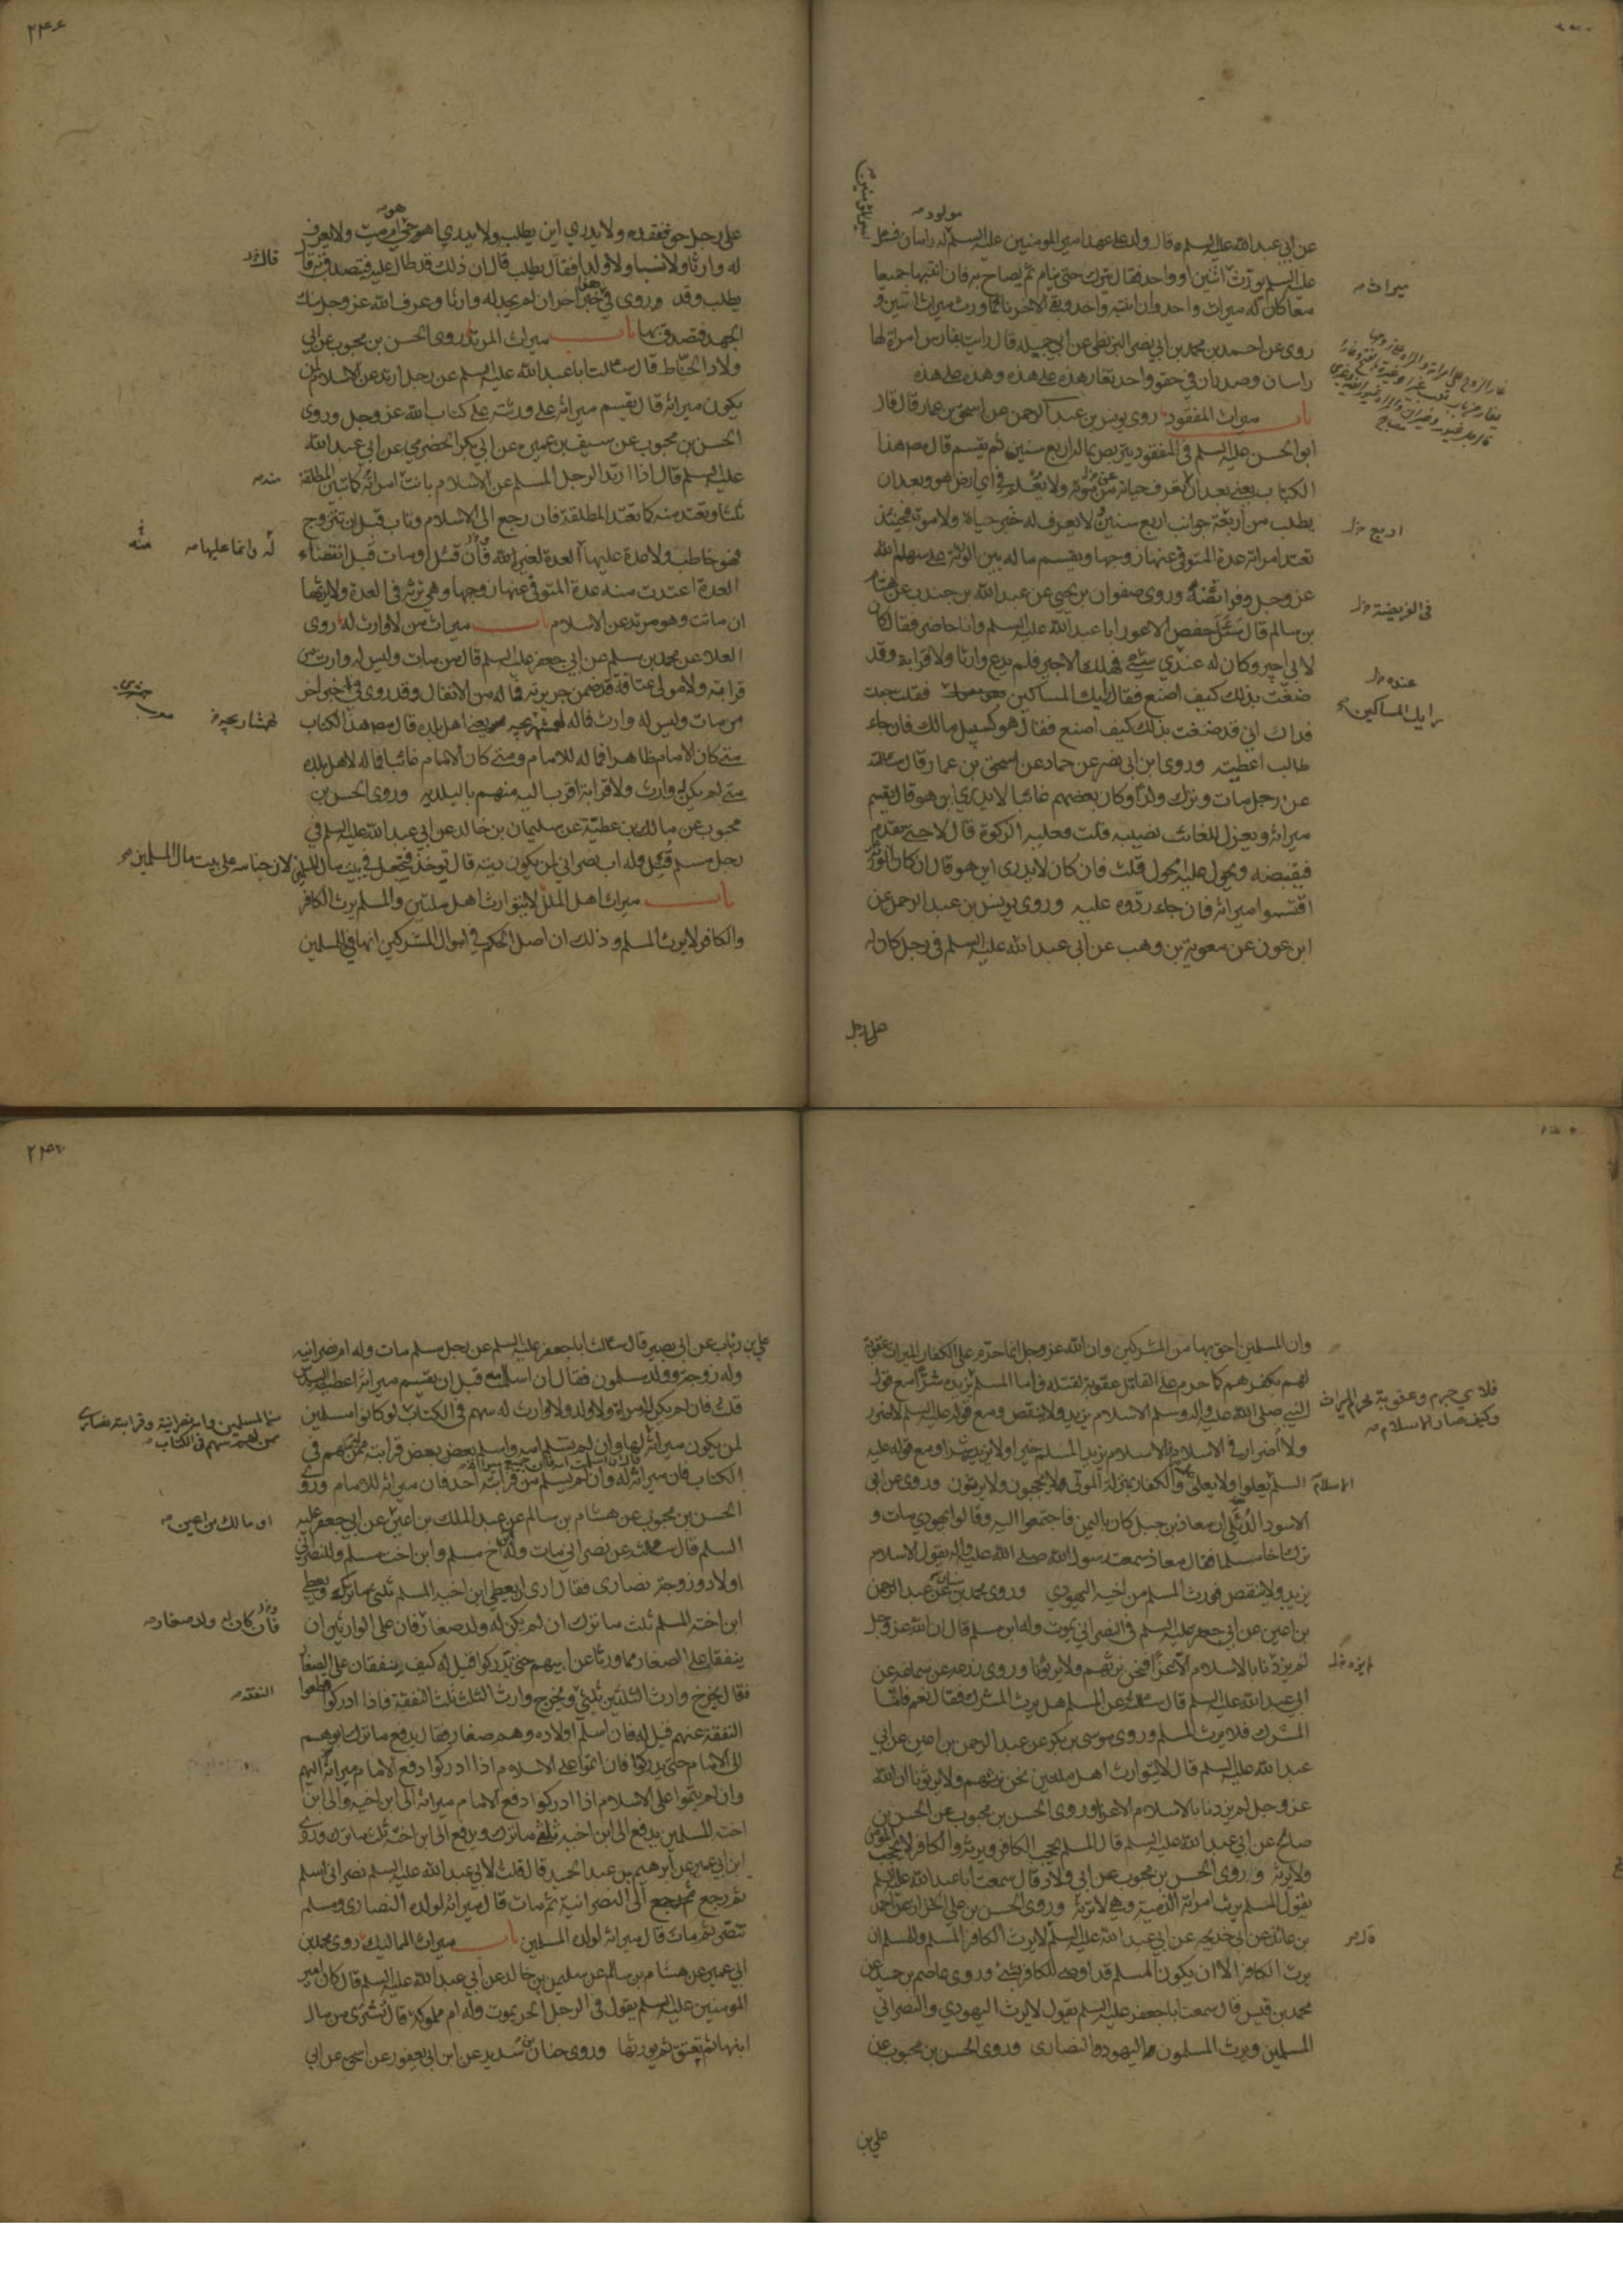 عن ابي عبد الله عليه السلم قال ولد على عهد امير المومنين عليه السلم له راسان فسئل
عليه السلم يورث اثنين او واحد فقال يترك حتى ينام ثم يصاح به فان انتبها جميعا
معا كان له ميراث واحد وان انتبه واحد وبقي الاخر نائما ورث ميراث اثنين و
روى عن احمد بن محمد بن ابي نصر البزنطي عن ابي جميله قال رايت بفارس امراة لها
راسان وصدران في حقو واحد تغار هذه على هذه وهذه على هذه
باب ميراث المفقود روى يونس بن عبد الرحمن عن اسحق بن عمار قال قال
ابو الحسن عليه السلم في المفقود يتربص بماله اربع سنين ثم يقسم قال مص هذا
الكتاب يعني بعد ان لا يعرف حياته من موته ولا يعلم في اي ارض هو وبعد ان
يطلب من اربعة جوانب اربع سنين ولا يعرف له خبر حياة ولا موت فحينئذ
تعتد امراته عدة المتوفى عنها زوجها ويقسم ماله بين الورثة على سهام الله
عز وجل وفرائضه وروى صفوان بن يحيى عن عبد الله بن جندب عن هشام
بن سالم قال سئل حفص الاعور ابا عبد الله عليه السلم وانا حاضر فقال كان
لابي اجير وكان له عندي شيء فهلك الاجير فلم يدع وارثا ولا قرابة وقد
ضقت بذلك كيف اصنع فقال رايك المساكين فقلت جعلت
فداك اني قد ضقت بذلك كيف اصنع فقال هو كسبيل مالك فان جاء
طالب اعطيته وروى ابن ابي نصر عن حماد عن اسحق بن عمار قال سالته
عن رجل مات وترك ولدا وكان بعضهم غائبا لا يدري اين هو قال يقسم
ميراثه ويعزل للغائب نصيبه قلت فعليه الزكوة قال لا حتى يقدم
فيقبضه ويحول عليه الحول قلت فان كان لا يدرى اين هو قال ان كان الورثة
اقتسموا ميراثه فان جاء ردوه عليه وروى يونس بن عبد الرحمن عن
ابن عون عن معوية بن وهب عن ابي عبد الله عليه السلم في رجل كان له
على رجل
مولود
ميراث
اربع
في الفريضة
عنده
رايك المساكين
٢٤٦
على رجل حق ففقده ولا يدري اين يطلب ولا يدري اهو حي ام ميت ولا يعرف
له وارثا ولا نسبا ولا ولدا فقال يطلب قال ان ذلك قد طال عليه فيتصدق به قال
يطلب وقد وروى في خبر اخر ان لم يجد له وارثا وعرف الله عز وجل منك
الجهد فتصدق بها باب ميراث المرتد روى الحسن بن محبوب عن ابي
ولاد الحناط قال سالت ابا عبد الله عليه السلم عن رجل ارتد عن الاسلام لمن
يكون ميراثه قال يقسم ميراثه على ورثته على كتاب الله عز وجل وروى
الحسن بن محبوب عن سيف بن عميرة عن ابي بكر الحضرمي عن ابي عبد الله
عليه السلم قال اذا ارتد الرجل المسلم عن الاسلام بانت امراته كما تبين المطلقة
ثلثا وتعتد منه كما تعتد المطلقة فان رجع الى الاسلام وتاب قبل ان تتزوج
فهو خاطب ولا عدة عليها العدة لغيره فان قتل او مات قبل انقضاء
العدة اعتدت منه عدة المتوفى عنها زوجها وهي ترثه في العدة ولا يرثها
ان ماتت وهو مرتد عن الاسلام باب ميراث من لا وارث له روى
العلا عن محمد بن مسلم عن ابي جعفر عليه السلم قال من مات وليس له وارث من
قرابته ولا مولى عتاقة قد ضمن جريرته فماله من الانفال وقد روي في خبر اخر
من مات وليس له وارث فماله يعني اهل بلده قال مص هذا الكتاب
متى كان الامام ظاهرا فماله للامام ومتى كان الامام غائبا فماله لاهل بلده
متى لم يكن له وارث ولا قرابة اقرب اليه منهم بالبلدية وروى الحسن بن
محبوب عن مالك بن عطية عن سليمان بن خالد عن ابي عبد الله عليه السلم في
رجل مسلم قتل وله اب نصراني لمن يكون ديته قال توخذ فتجعل في بيت مال المسلمين لان جنايته على بيت مال المسلمين
باب ميراث اهل الملل لا يتوارث اهل ملتين والمسلم يرث الكافر
والكافر لا يرث المسلم وذلك ان اصل الحكم في اموال المشركين انها في للمسلمين
منه
له وانما عليها
وان المسلمين احق بها من المشركين وان الله عز وجل انما حرم على الكفار الميراث عقوبة
لهم بكفرهم كما حرم على القاتل عقوبة لقتله فاما المسلم يزيده شرا مع قول
النبي صلى الله عليه واله وسلم الاسلام يزيد ولا ينقص ومع قوله عليه السلم لا ضرر
ولا اضرار في الاسلام فالاسلام يزيد المسلم خيرا ولا يزيده شرا ومع قوله عليه
السلم يعلو ولا يعلى والكفار بمنزلة الموتى لا يحجبون ولا يرثون وروى عن ابي
الاسود الدئلي ان معاذ بن جبل كان باليمن فاجتمعوا اليه وقالوا يهودي مات و
ترك اخا مسلما فقال معاذ سمعت رسول الله صلى الله عليه واله يقول الاسلام
يزيد ولا ينقص فورث المسلم من اخيه اليهودي وروى محمد بن سنان عن عبد الرحمن
بن اعين عن ابي جعفر عليه السلم في النصراني يموت وله ابن مسلم قال ان الله عز وجل
لم يزدنا بالاسلام الا عزا فنحن نرثهم ولا يرثونا وروى زرعه عن سماعه عن
ابي عبد الله عليه السلم قال سالته عن المسلم هل يرث المشرك فقال نعم فاما
المشرك فلا يرث المسلم وروى موسى بن بكر عن عبد الرحمن بن اعين عن ابي
عبد الله عليه السلم قال لا يتوارث اهل ملتين نحن نرثهم ولا يرثونا ان الله
عز وجل لم يزدنا بالاسلام الا عزا وروى الحسن بن محبوب عن الحسن بن
صالح عن ابي عبد الله عليه السلم قال المسلم يحجب الكافر ويرثه والكافر لا يحجب المؤمن
ولا يرثه وروى الحسن بن محبوب عن ابي ولاد قال سمعت ابا عبد الله عليه السلم
يقول المسلم يرث امراته الذمية وهي لا ترثه وروى الحسن بن علي الخزاز عن احمد
بن عائذ عن ابي خديجه عن ابي عبد الله عليه السلم لا يرث الكافر المسلم وللمسلم ان
يرث الكافر الا ان يكون المسلم قد اوصى للكافر بشيء وروى عاصم بن حميد عن
محمد بن قيس قال سمعت ابا جعفر عليه السلم يقول لا يرث اليهودي والنصراني
المسلمين ويرث المسلمون اليهود والنصارى وروى الحسن بن محبوب عن
علي بن
فلاي جرم وعقوبة يحرم الميراث
وكيف صار الاسلام
الاسلام
قال
٢٤٧
علي بن رئاب عن ابي بصير قال سالت ابا جعفر عليه السلم عن رجل مسلم مات وله ام نصرانية
وله زوجة وولد مسلمون فقال ان اسلمت امه قبل ان يقسم ميراثه اعطيت السدس
قلت فان لم يكن له امراة ولا ولد ولا وارث له سهم في الكتاب لو كانوا مسلمين
لمن يكون ميراثه لها وان لم تسلم امه واسلم بعض قرابته ممن لهم سهم في
الكتاب فان ميراثه له وان لم يسلم من قرابته احد فان ميراثه للامام وروى
الحسن بن محبوب عن هشام بن سالم عن عبد الملك بن اعين عن ابي جعفر عليه
السلم قال سالته عن نصراني مات وله ابن اخ مسلم وابن اخت مسلم وللنصراني
اولاد وزوجة نصارى فقال ارى ان يعطى ابن اخيه المسلم ثلثي ما ترك ويعطى
ابن اخته المسلم ثلث ما ترك ان لم يكن له ولد صغار فان على الوارثين ان
ينفقا على الصغار مما ورثا عن ابيهم حتى يدركوا قيل له كيف ينفقان على الصغار
فقال يخرج وارث الثلثين ثلثي ويخرج وارث الثلث ثلث النفقة فاذا ادركوا قطعوا
النفقة عنهم قيل له فان اسلم اولاده وهم صغار فقال يدفع ما ترك ابوهم
الى الامام حتى يدركوا فان اتموا على الاسلام اذا ادركوا دفع الامام ميراثه اليهم
وان لم يتموا على الاسلام اذا ادركوا دفع الامام ميراثه الى ابن اخيه والى ابن
اخته المسلمين يدفع الى ابن اخيه ثلثي ما ترك ويدفع الى ابن اخته ثلث ما ترك وروى
ابن ابي عمير عن ابرهيم بن عبد الحميد قال قلت لابي عبد الله عليه السلم نصراني اسلم
ثم رجع الى النصرانية ثم مات قال ميراثه لولده النصارى ومسلم
تنصر ثم مات قال ميراثه لولده المسلمين باب ميراث المماليك روى محمد بن
ابي عمير عن هشام بن سالم عن سليمن بن خالد عن ابي عبد الله عليه السلم قال كان امير
المومنين عليه السلم يقول في الرجل الحر يموت وله ام مملوكة قال تشترى من مال
ابنها ثم تعتق ثم يورثها وروى حنان بن سدير عن ابن ابي يعفور عن اسحق عن ابي
او مالك بن اعين
فان كان له ولد صغار
النفقة